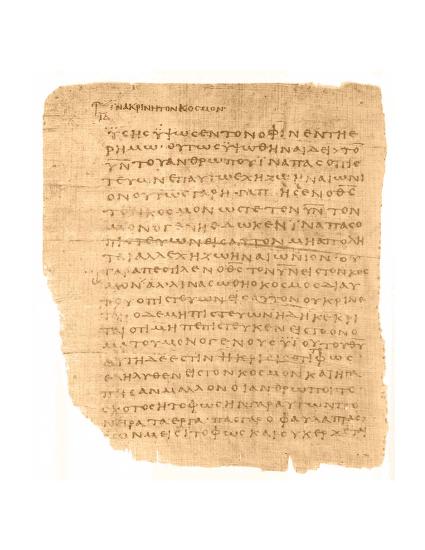 ΪΝΑΚΡΙΝΗΤΟΝΚΟϹΜΟΝ
ΙΔ
ΫϹΗϹΫΨΩϹΕΝΤΟΝΟΦΙΝΕΝΤΗΕ
ΡΗΜΩ·ΟΥΤΩϹΫΨΩΘΗΝΑΙΔΕΙ>ΤΟ
Υ̅Ν̅ΤΟΥΑΝΘΡΩΠΟΥΪΝΑΠΑϹΟΠΙϹ
ΤΕΥΩΝΕΠΑΥΤΩΕΧΗΖΩΗΝΑΙΩΝΙ
ΟΝΟΥΤΩϹΓΑΡΗΓΑΠΗϹΕΝΟΘ̅Ϲ̅
ΤΟΝΚΟϹΜΟΝΩϹΤΕΤΟΝΥ̅Ν̅ΤΟΝ
ΜΟΝΟΓΕΝΗΕΔΩΚΕΝΪΝΑΠΑϹΟ
ΠΙϹΤΕΥΩΝΕΙϹΑΥΤΟΝΜΗΑΠΟΛΗ
ΤΑΙΑΛΛΕΧΗΖΩΗΝΑΙΩΝΙΟΝ·ΟΥ
ΓΑΡΑΠΕϹΤΙΛΕΝΟΘ̅Ϲ̅ΤΟΝΥ̅Ν̅ΕΙϹΤΟΝΚΟϹ
ΜΟΝΑΛΛΙΝΑϹΩΘΗΟΚΟϹΜΟϹΔΙΑΥ
ΤΟΥΟΠΙϹΤΕΥΩΝΕΙϹΑΥΤΟΝΟΥΚΡΙΝΕ
ΤΑΙΟΔΕΜΗΠΙϹΤΕΥΩΝΗΔΗΚΕΚΡΙ
ΤΑΙΟΤΙΜΗΠΕΠΙϹΤΕΥΚΕΝΕΙϹΤΟΟΝΟ
ΜΑΤΟΥΜΟΝΟΓΕΝΟΥϹΫΙΟΥΤΟΥΘ̅Υ̅
ΑΥΤΗΔΕΕϹΤΙΝΗΚΡΙϹΙϹΟΤΙΤΟΦΩϹ
ΕΛΗΛΥΘΕΝΕΙϹΤΟΝΚΟϹΜΟΝΚΑΙΗΓΑ
ΠΗϹΑΝΜΑΛΛΟΝΟΙΑΝΘΡΩΠΟΙΤΟ
ϹΚΟΤΟϹΗΤΟΦΩϹΗΝΓΑΡΑΥΤΩΝΠΟ
ΝΕΙΡΑΤΑΕΡΓΑ·ΠΑϹΓΑΡΟΦΑΥΛΑΠΡΑϹ
ϹΩΝΜΕΙϹΙΤΟΦΩϹΚΑΙΟΥΚΕΡΧΕΤΑΙ